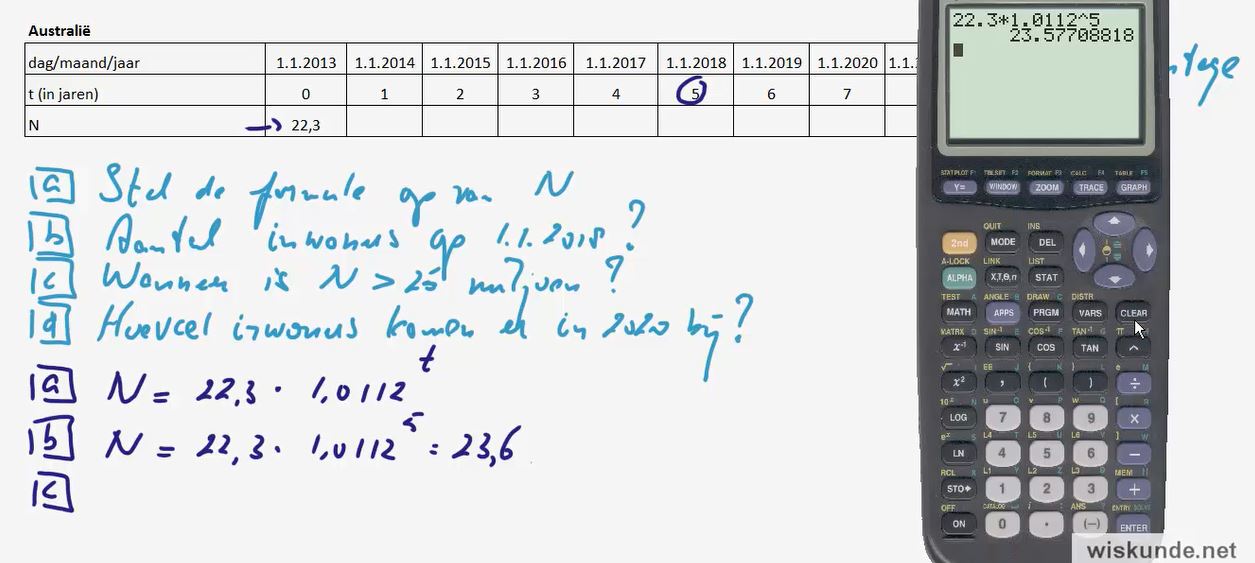 Australië
dag/maand/jaar 1.1.2013 1.1.2014 1.1.2015 1.1.2016 1.1.2017 1.1.2018 1.1.2019 1.1.2020 1.1.
t (in jaren) 0 1 2 3 4 5 6 7
N → 22,3
a Stel de formule op van N
b Aantal inwoners op 1.1.2018?
c Wanneer is N > 25 miljoen?
d Hoeveel inwoners komen er in 2020 bij?
a N = 22,3 · 1,0112^t
b N = 22,3 · 1,0112^5 = 23,6
c
22.3*1.0112^5
23.57708818
STATPLOT F1 TBLSET F2 FORMAT F3 CALC F4 TABLE F5
Y= WINDOW ZOOM TRACE GRAPH
QUIT INS
2nd MODE DEL
A-LOCK LINK LIST
ALPHA X,T,θ,n STAT
TEST A ANGLE B DRAW C DISTR
MATH APPS PRGM VARS CLEAR
MATRX D SIN⁻¹ E COS⁻¹ F TAN⁻¹ G π H
x⁻¹ SIN COS TAN ^
x² , ( ) ÷
LOG 7 8 9 ×
LN 4 5 6 −
RCL X L1 Y L2 Z L3 MEM
STO► 1 2 3 +
OFF CATALOG i : ANS ? ENTRY SOLVE
ON 0 . (−) ENTER
wiskunde.net